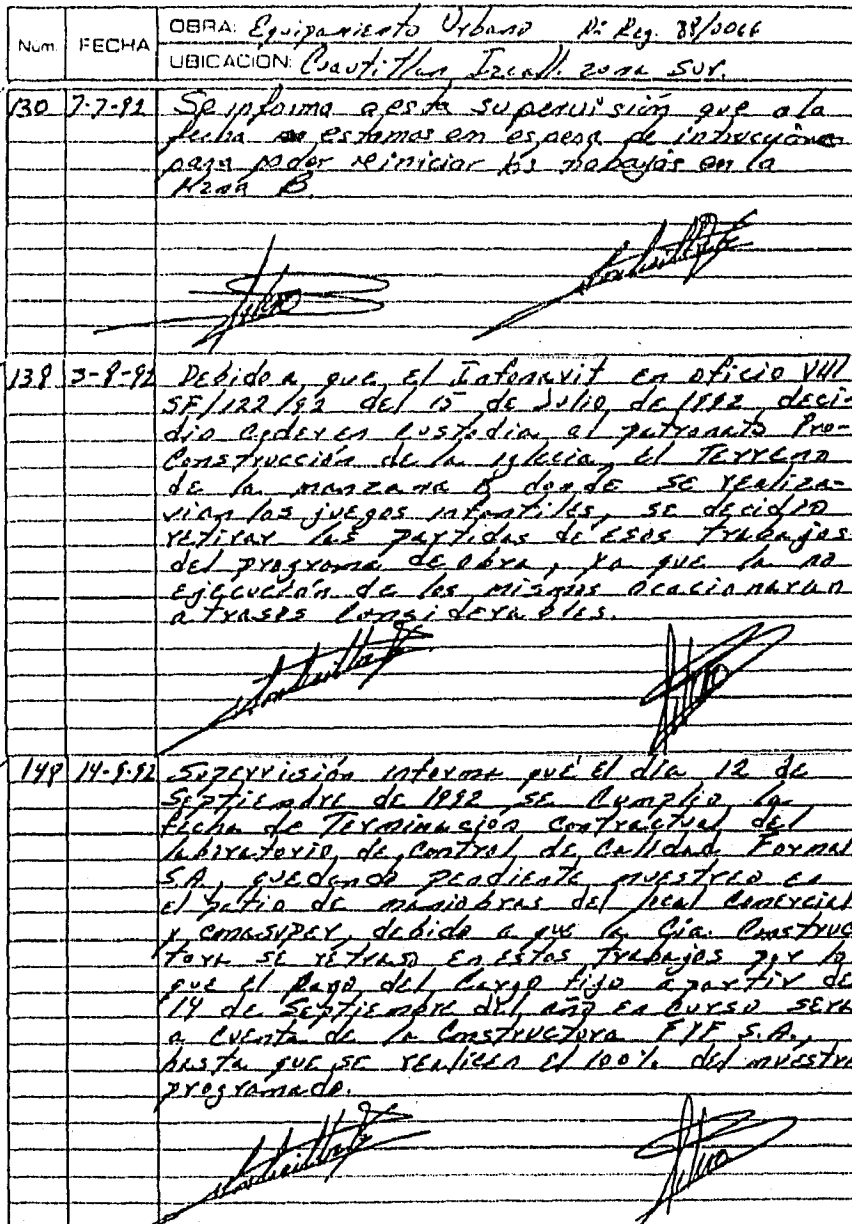 Num. FECHA OBRA: Equipamiento Urbano No Reg. 88/0066
UBICACION: Cuautitlan Izcalli zona Sur.
130 7-7-92 Se informa a esta supervisión que a la
fecha estamos en espera de
para poder reiniciar los trabajos en la
Mzna B.
138 3-8-92 Debido a que el Infonavit en oficio VIII
SF/122/92 del 15 de Julio de 1992, deci-
dio ceder en custodia al patronato Pro-
Construcción de la iglecia, el Terreno
de la manzana B donde se realiza-
rian los juegos infantiles, se decidio
retirar las partidas de esos trabajos
del programa de obra, ya que la no
ejecución de los mismos ocacionaran
atrases considerables.
148 14-9-92 Supervisión informa que el día 12 de
Septiembre de 1992 se cumplio la
fecha de Terminación contractual del
laboratorio de Control de Calidad Formal
S.A, quedando pendiente muestreo en
el patio de maniobras del local Comercial
y conasuper, debido a que la Cia. Construc
tora se retraso en estos trabajos por lo
que el pago del Cargo fijo a partir de
14 de Septiembre del año en curso sera
a cuenta de la Constructora FYF S.A.,
hasta que se realicen el 100% del muestre
programado.